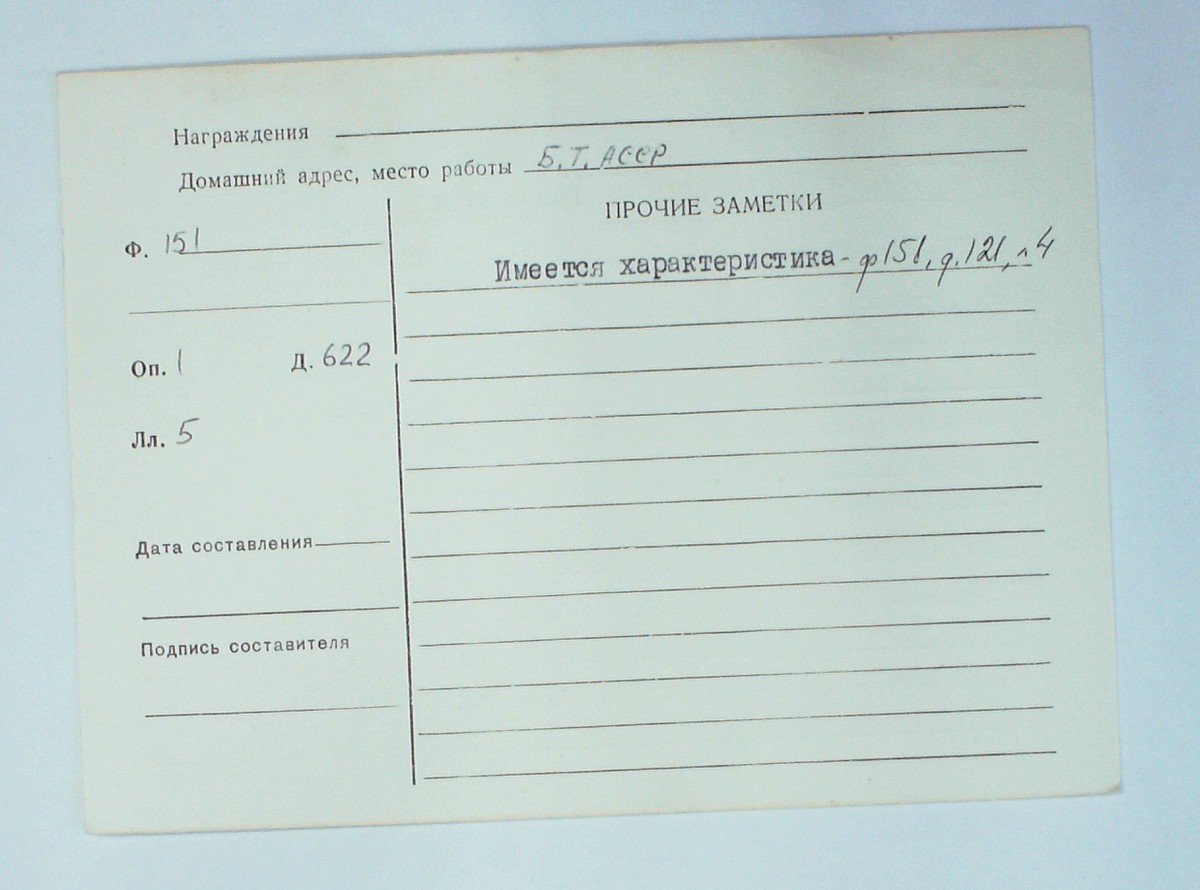 Награждения
Домашний адрес, место работы Б.Т.АССР
Ф. 151
ПРОЧИЕ ЗАМЕТКИ
Имеется характеристика - ф151, д.121, л.4
Оп. 1 Д. 622
Лл. 5
Дата составления
Подпись составителя